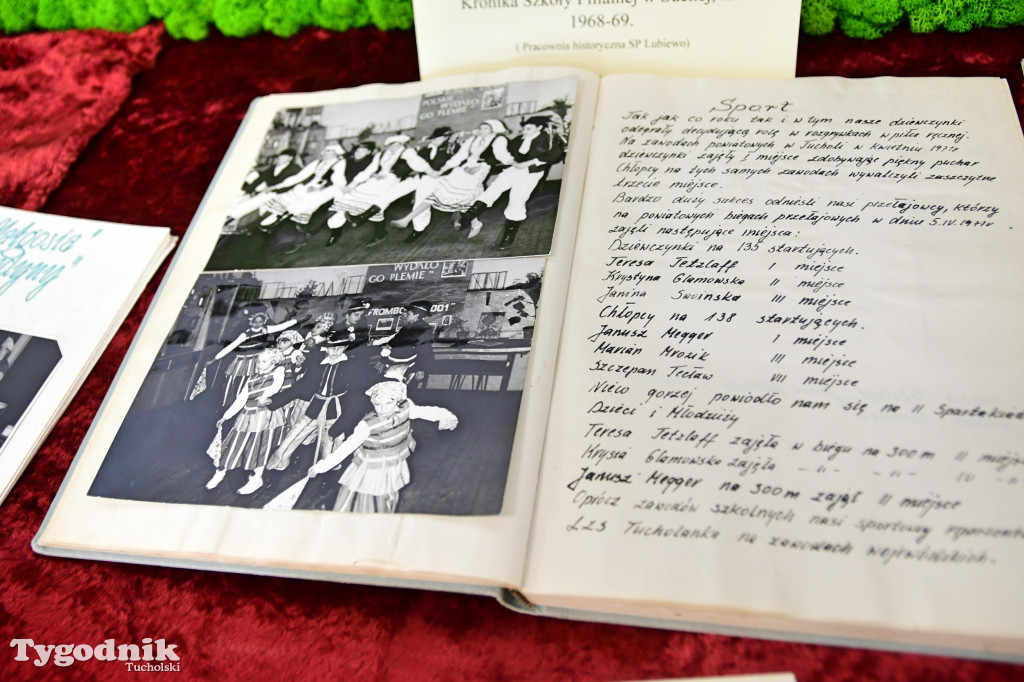 Kronika Szkoły Filialnej w Suchej,
1968-69.
( Pracownia historyczna SP Lubiewo)
POLSKIE WYDAŁO
GO PLEMIĘ"
WYDAŁO
GO PLEMIĘ"
FROMBO 001"
Sport
Jak jak co roku tak i w tym nasze dziewczynki
odegrały decydującą rolę w rozgrywkach w piłce ręcznej.
Na zawodach powiatowych w Tucholi w kwietniu 1971r
dziewczynki zajęły I miejsce zdobywając piękny puchar
Chłopcy na tych samych zawodach wywalczyli zaszczytne
trzecie miejsce.
Bardzo duży sukces odnieśli nasi przełajowcy, którzy
na powiatowych biegach przełajowych w dniu 5.IV.1971r.
zajęli następujące miejsca:
Dziewczynki na 135 startujących.
Teresa Tetzlaff I miejsce
Krystyna Glamowska II miejsce
Janina Swoińska III miejsce
Chłopcy na 138 startujących.
Janusz Megger I miejsce
Marian Mrozik III miejsce
Szczepan Tecław VII miejsce
Nieco gorzej powiodło nam się na II Spartakiadzie
Dzieci i Młodzieży
Teresa Tetzlaff zajęła w biegu na 300m II miejsce
Krysia Glamowska zajęła -"- -"- IV -"-
Janusz Megger na 300m zajął II miejsce
Oprócz zawodów szkolnych nasi sportowcy
LZS Tucholanka na zawodach wojewódzkich.
Tygodnik
Tucholski